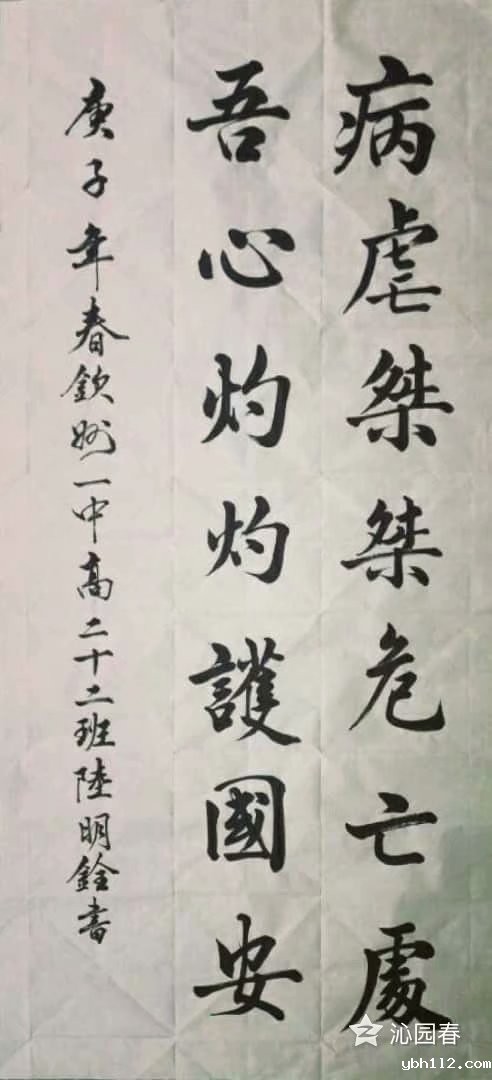 病虐桀桀危亡處
吾心灼灼護國安
庚子年春欽州一中高二十二班陸明銓書
沁园春
ybh112.com